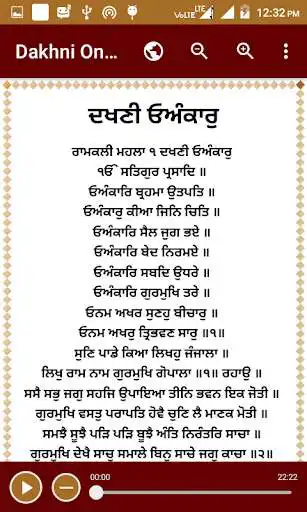 12:32 PM
VoLTE LTE
Dakhni On...
ਦਖਣੀ ਓਅੰਕਾਰੁ
ਰਾਮਕਲੀ ਮਹਲਾ ੧ ਦਖਣੀ ਓਅੰਕਾਰੁ
ੴ ਸਤਿਗੁਰ ਪ੍ਰਸਾਦਿ ॥
ਓਅੰਕਾਰਿ ਬ੍ਰਹਮਾ ਉਤਪਤਿ ॥
ਓਅੰਕਾਰੁ ਕੀਆ ਜਿਨਿ ਚਿਤਿ ॥
ਓਅੰਕਾਰਿ ਸੈਲ ਜੁਗ ਭਏ ॥
ਓਅੰਕਾਰਿ ਬੇਦ ਨਿਰਮਏ ॥
ਓਅੰਕਾਰਿ ਸਬਦਿ ਉਧਰੇ ॥
ਓਅੰਕਾਰਿ ਗੁਰਮੁਖਿ ਤਰੇ ॥
ਓਨਮ ਅਖਰ ਸੁਣਹੁ ਬੀਚਾਰੁ ॥
ਓਨਮ ਅਖਰੁ ਤ੍ਰਿਭਵਣ ਸਾਰੁ ॥੧॥
ਸੁਣਿ ਪਾਡੇ ਕਿਆ ਲਿਖਹੁ ਜੰਜਾਲਾ ॥
ਲਿਖੁ ਰਾਮ ਨਾਮ ਗੁਰਮੁਖਿ ਗੋਪਾਲਾ ॥੧॥ ਰਹਾਉ ॥
ਸਸੈ ਸਭੁ ਜਗੁ ਸਹਜਿ ਉਪਾਇਆ ਤੀਨਿ ਭਵਨ ਇਕ ਜੋਤੀ ॥
ਗੁਰਮੁਖਿ ਵਸਤੁ ਪਰਾਪਤਿ ਹੋਵੈ ਚੁਣਿ ਲੈ ਮਾਣਕ ਮੋਤੀ ॥
ਸਮਝੈ ਸੂਝੈ ਪੜਿ ਪੜਿ ਬੂਝੈ ਅੰਤਿ ਨਿਰੰਤਰਿ ਸਾਚਾ ॥
ਗੁਰਮੁਖਿ ਦੇਖੈ ਸਾਚੁ ਸਮਾਲੇ ਬਿਨੁ ਸਾਚੇ ਜਗੁ ਕਾਚਾ ॥੨॥
00:00
22:22